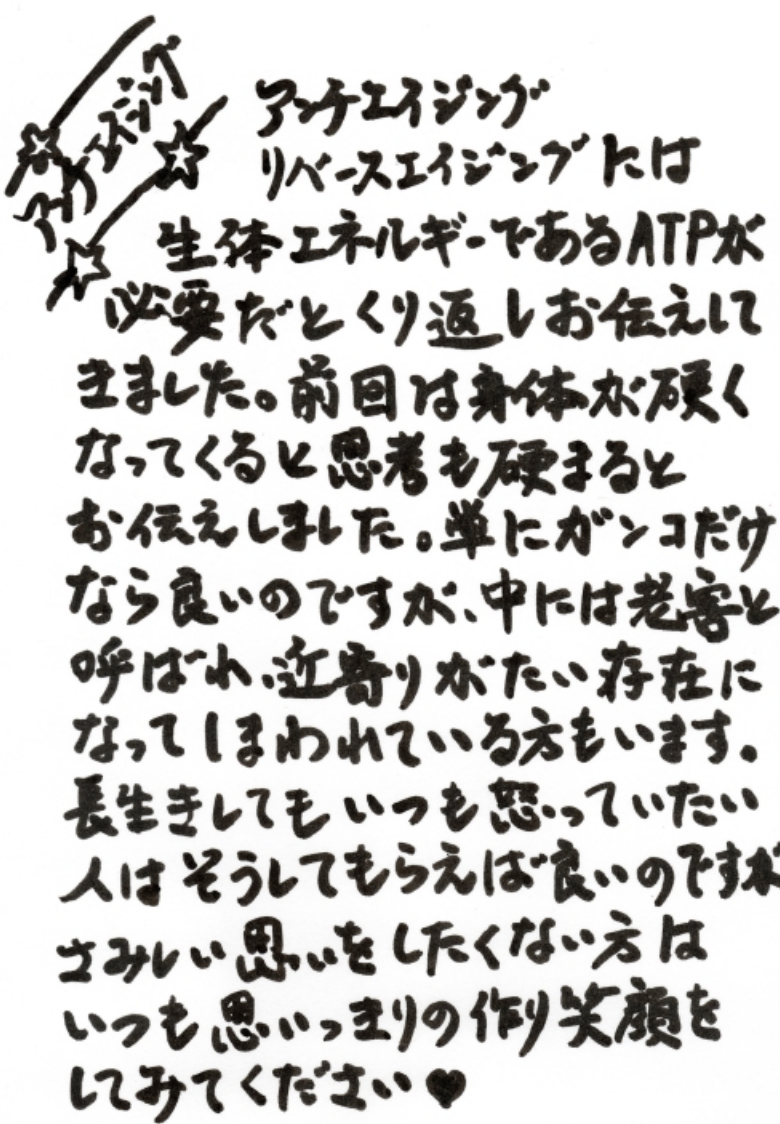 アンチエイジング
アンチエイジング
リバースエイジングには
生体エネルギーであるATPが
必要だとくり返しお伝えして
きました。前回は身体が硬く
なってくると思考も硬まると
お伝えしました。単にガンコだけ
なら良いのですが、中には老害と
呼ばれ、近寄りがたい存在に
なってしまわれている方もいます。
長生きしてもいつも怒っていたい
人はそうしてもらえば良いのですが
さみしい思いをしたくない方は
いつも思いっきりの作り笑顔を
してみてください♥